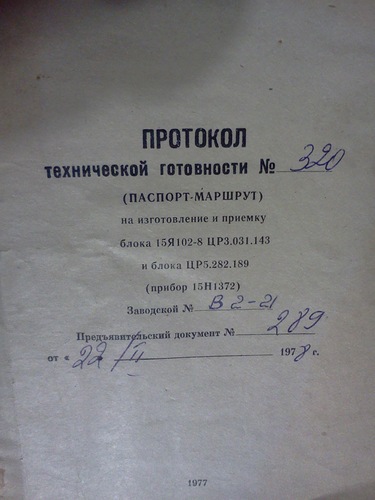 ПРОТОКОЛ
технической готовности № 320
(ПАСПОРТ-МАРШРУТ)
на изготовление и приемку
блока 15Я102-8 ЦР3.031.143
и блока ЦР5.282.189
(прибор 15Н1372)
Заводской № В2-21
Предъявительский документ № 289
от «22/II 1978 г.
1977